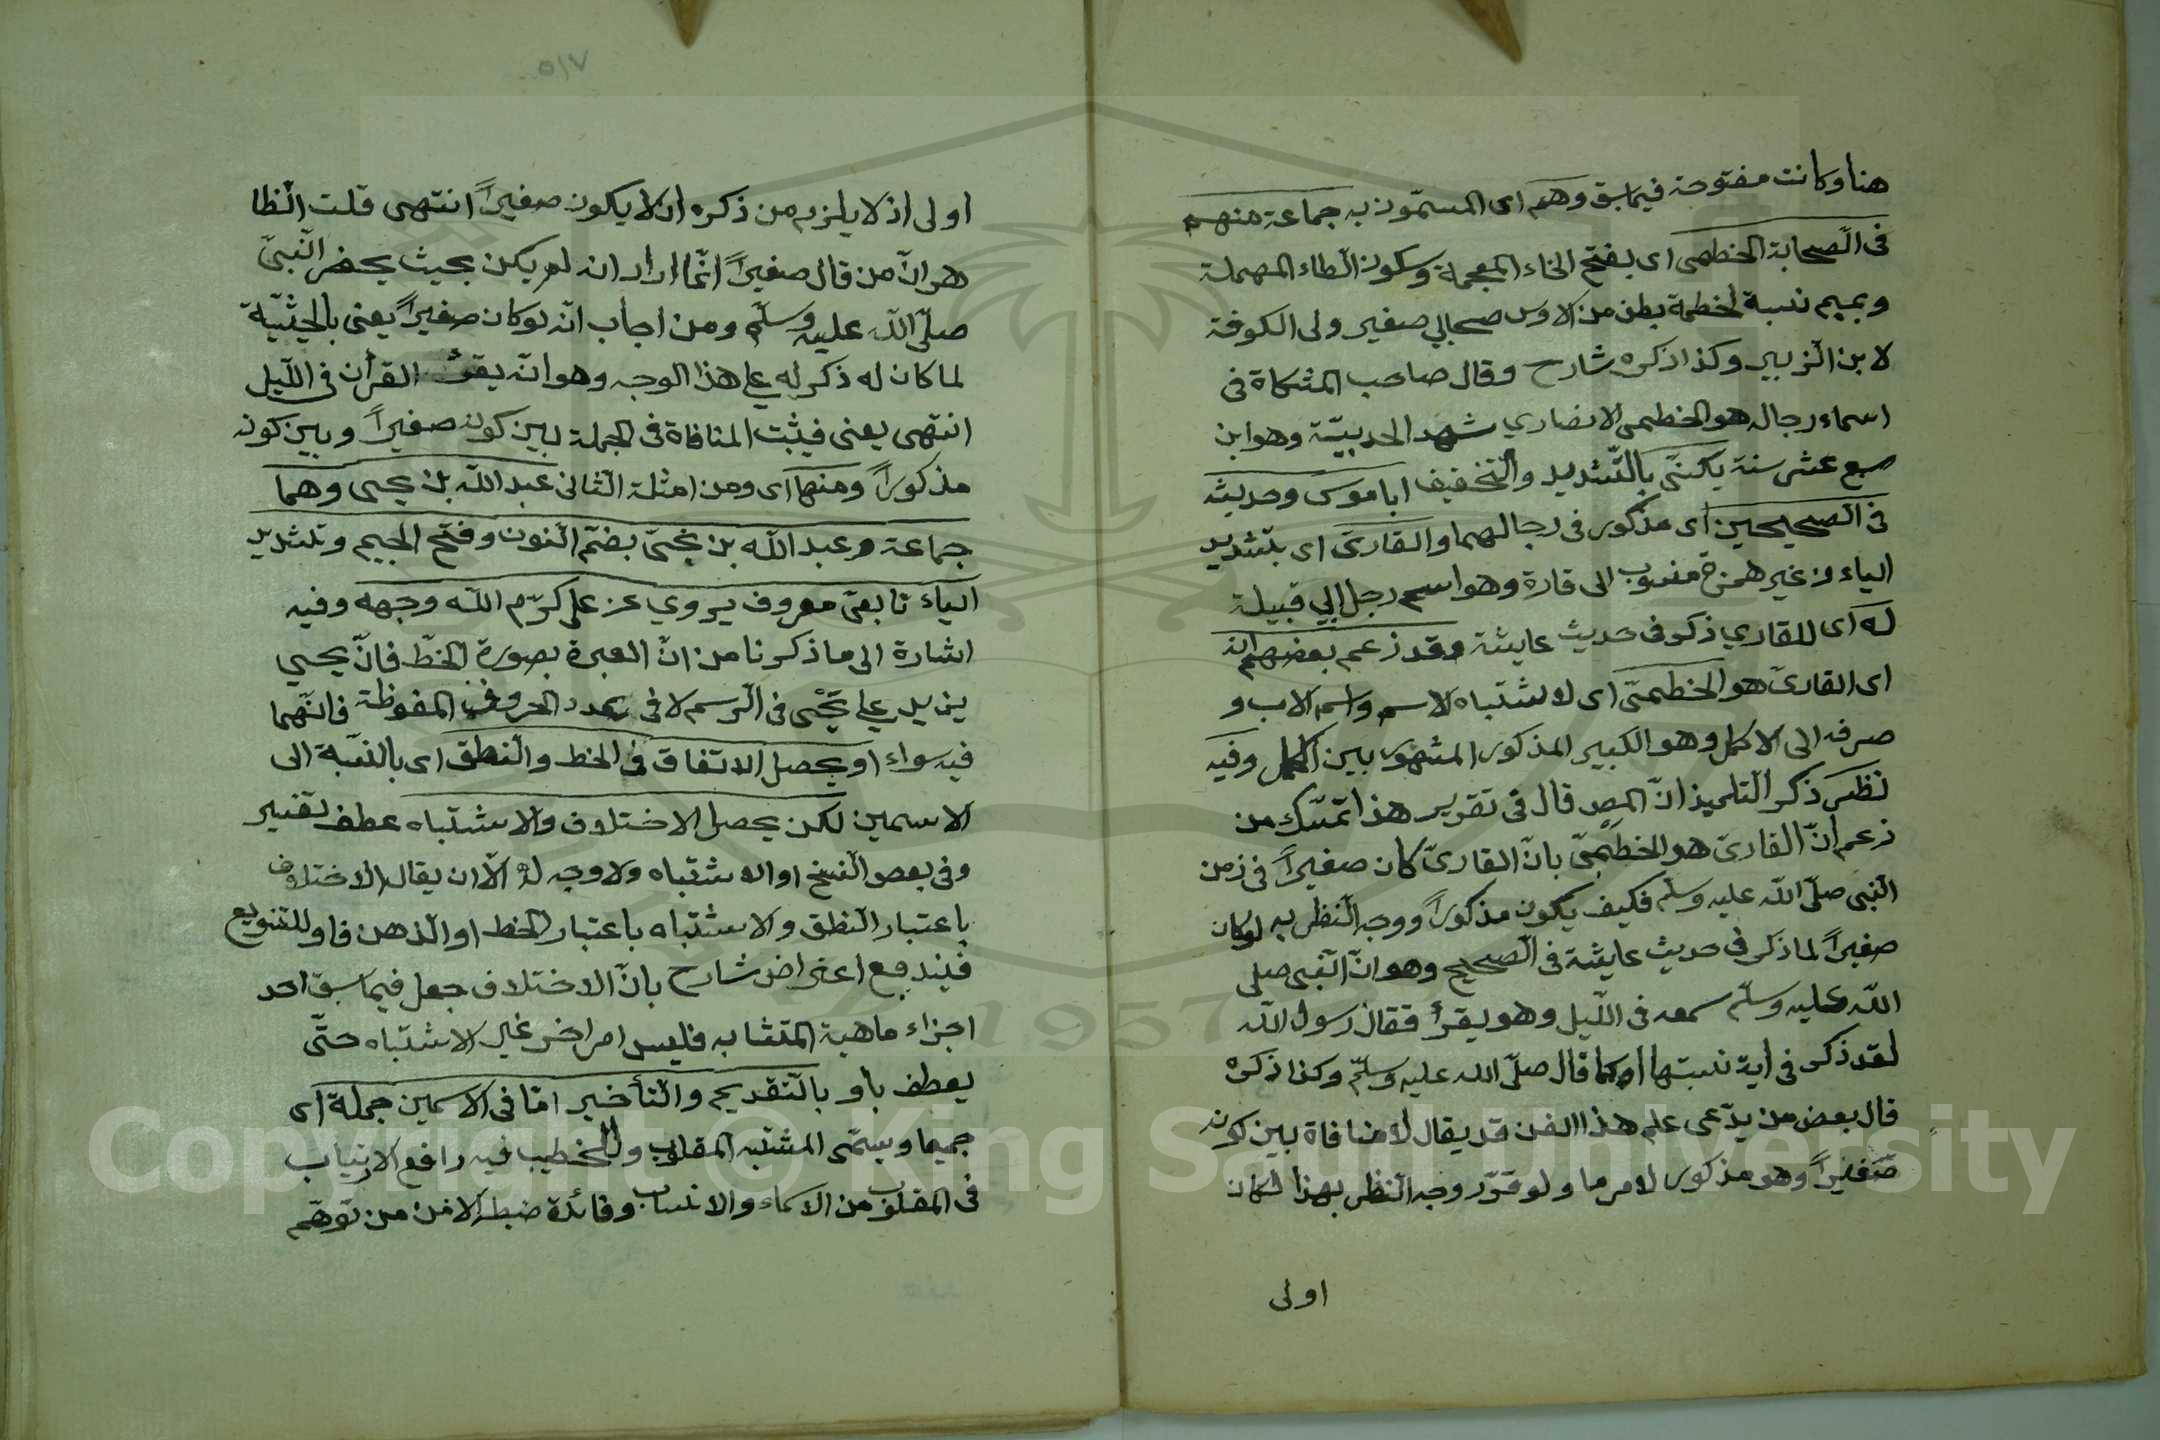 هنا وكانت مفتوحة فيما سبق وهم اى المسمّون به جماعة منهم
فى الصّحابة الخطمى اى بفتح الخاء المعجمة وسكون الطّاء المهملة
وبميم نسبة لخطمة بطن من الاوس صحابي صغير ولى الكوفة
لابن الزّبير وكذا ذكره شارح وقال صاحب المشكاة فى
اسماء رجاله هو الخطمى الانصاري شهد الحديبيّة وهو ابن
سبع عشر سنة يكنّى بالتّشديد والتّخفيف ابا موسى وحديثه
فى الصّحيحين اى مذكور فى رجالهما والقارىّ اى بتشديد
الياء من غير همزة منسوب الى قارة وهو اسم رجل ابي قبيلة
له اى للقاري ذكر فى حديث عايشة وقد زعم بعضهم انه
اى القارىّ هو الخطمىّ اى لاشتباه الاسم واسم الاب و
صرفه الى الاكمل وهو الكبير المذكور المشهور بين الكمل وفيه
نظر ذكر التلميذ انّ المص قال فى تقرير هذا تمسّك من
زعم انّ القارىّ هو الخطمىّ بانّ القارىّ كان صغيراً فى زمن
النّبى صلّى اللّه عليه وسلّم فكيف يكون مذكوراً ووجه النّظر به لو كان
صغيراً لما ذكر فى حديث عايشة فى الصّحيح وهو انّ النّبى صلى
اللّه عليه وسلّم سمعه فى اللّيل وهو يقرأ فقال رسول اللّه
لقد ذكر فى اية نسيتها او كما قال صلّى اللّه عليه وسلّم وكذا ذكره
قال بعض من يدّعى علم هذا الفن قد يقال لا منافاة بين كونه
صغيراً وهو مذكور لامر ما ولو قرّر وجه النّظر بهذا لكان
اولى
٥١٧
اولى اذ لا يلزم من ذكره ان لا يكون صغيراً انتهى قلت الظا
هر انّ من قال صغيراً انّما اراد انه لم يكن بحيث يحضر النّبىّ
صلّى اللّه عليه وسلّم ومن اجاب انّه لو كان صغيراً يعنى بالحيثيّة
لما كان له ذكر له على هذا الوجه وهو انّه يقرئ القرأن فى اللّيل
انتهى يعنى فيثبت المنافاة فى الجملة بين كونه صغيراً وبين كونه
مذكوراً ومنها اى ومن امثلة الثانى عبد اللّه بن يحيى وهما
جماعة وعبد اللّه بن نجىّ بضمّ النون وفتح الجيم وتشديد
الياء تابعىّ معروف يروي عن على كرّم اللّه وجهه وفيه
اشارة الى ما ذكرنا من انّ العبرة بصورة الخطّ فانّ يحيي
يزيد على نجىّ فى الرّسم لا فى عدد الحروف الملفوظة فانّهما
فيه سواء او يحصل الاتفاق فى الخط والنطق اى بالنّسبة الى
الاسمين لكن يحصل الاختلاف والاشتباه عطف تفسير
وفى بعض النّسخ او الاشتباه ولا وجه له الّا ان يقال الاختلاف
باعتبار النطق والاشتباه باعتبار الخط او الذهن فاو للتنويع
فيندفع اعتراض شارح بانّ الاختلاف جعل فيما سبق احد
اجزاء ماهية المتشابه فليس امر اخر غير الاشتباه حتّى
يعطف باو بالتّقديم والتّأخير امّا فى الاسمين جملة اى
جميعا ويسمّى المشتبه المقلوب وللخطيب فيه رافع الارتياب
فى المقلوب من الاسماء والانساب وفائدة ضبطه الامن من توهّم
1957
Copyright © King Saud University